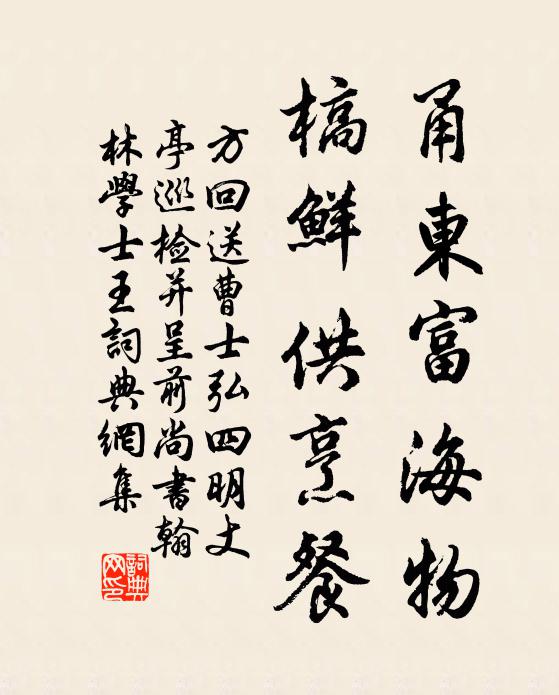 甬東富海物
槁鮮供烹餐
方回送曹士弘四明丈
亭巡检并呈前尚書翰
林學士王詞典網集
詞典网印